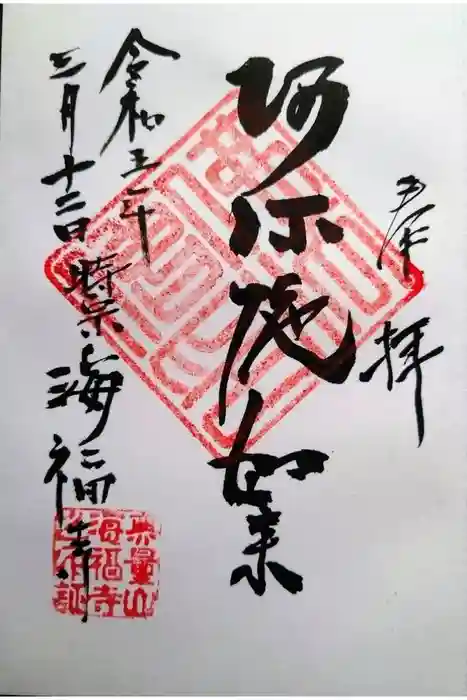 奉拝
阿弥陀如来
令和三年
三月十二日
時宗 海福寺
無量山
海福寺